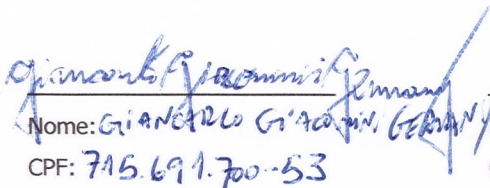 Giancarlo Giacomini Germany
Nome: GIANCARLO GIACOMINI GERMANY
CPF: 715.691.700-53